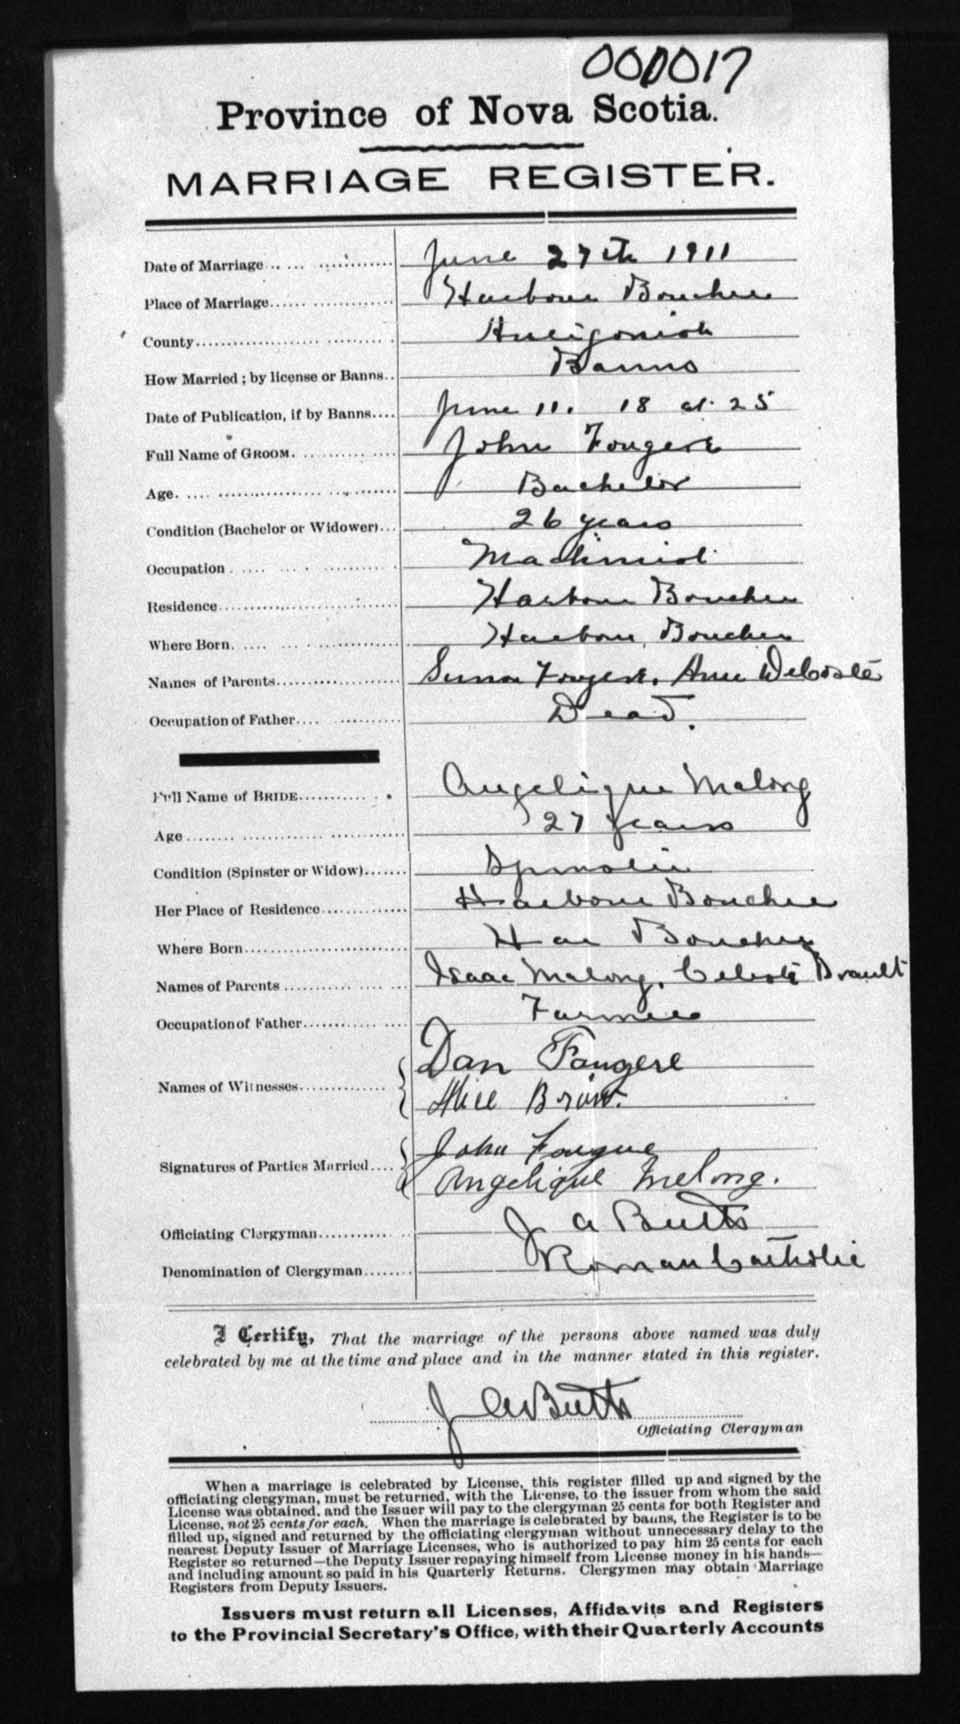 000017
Province of Nova Scotia.
MARRIAGE REGISTER.
Date of Marriage June 27th 1911
Place of Marriage Harbour Bouchee
County Antigonish
How Married; by license or Banns Banns
Date of Publication, if by Banns June 11. 18 et 25
Full Name of GROOM. John Fougere
Age. Bachelor
Condition (Bachelor or Widower) 26 years
Occupation Machinist
Residence Harbour Bouchee
Where Born. Harbour Bouchee
Names of Parents Fougere. Ann DeCoste
Occupation of Father Dead.
Full Name of BRIDE Angelique Melong
Age 27 years
Condition (Spinster or Widow) Spinster
Her Place of Residence Harbour Bouchee
Where Born Har Bouchee
Names of Parents Isaac Melong, Celeste
Occupation of Father Farmer
Names of Witnesses Dan Fougere
Alice
Signatures of Parties Married John Fougere
Angelique Melong.
Officiating Clergyman J A Butts
Denomination of Clergyman Roman Catholic
I Certify, That the marriage of the persons above named was duly
celebrated by me at the time and place and in the manner stated in this register.
J A Butts
Officiating Clergyman
When a marriage is celebrated by License, this register filled up and signed by the
officiating clergyman, must be returned, with the License, to the issuer from whom the said
License was obtained, and the Issuer will pay to the clergyman 25 cents for both Register and
License, not 25 cents for each. When the marriage is celebrated by banns, the Register is to be
filled up, signed and returned by the officiating clergyman without unnecessary delay to the
nearest Deputy Issuer of Marriage Licenses, who is authorized to pay him 25 cents for each
Register so returned—the Deputy Issuer repaying himself from License money in his hands—
and including amount so paid in his Quarterly Returns. Clergymen may obtain Marriage
Registers from Deputy Issuers.
Issuers must return all Licenses, Affidavits and Registers
to the Provincial Secretary's Office, with their Quarterly Accounts